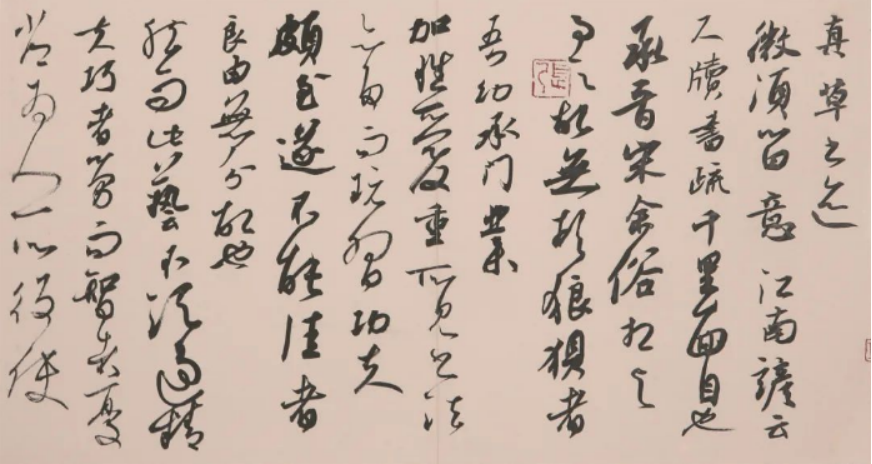 真草書迹
微須留意江南諺云
尺牘書疏千里面目也
承晉宋余俗相与
事之故無頓狼狽者
吾幼承門業
加性愛重所見书法
亦多而玩習功夫
頗至遂不能佳者
良由無分故也
然而此藝不須過精
夫巧者勞而智者憂
常為人所役使
張